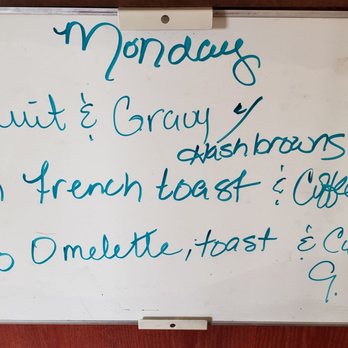 Monday
uit & Gravy w/
Hashbrowns
French toast & Coffe
Omelette, toast & C
9.